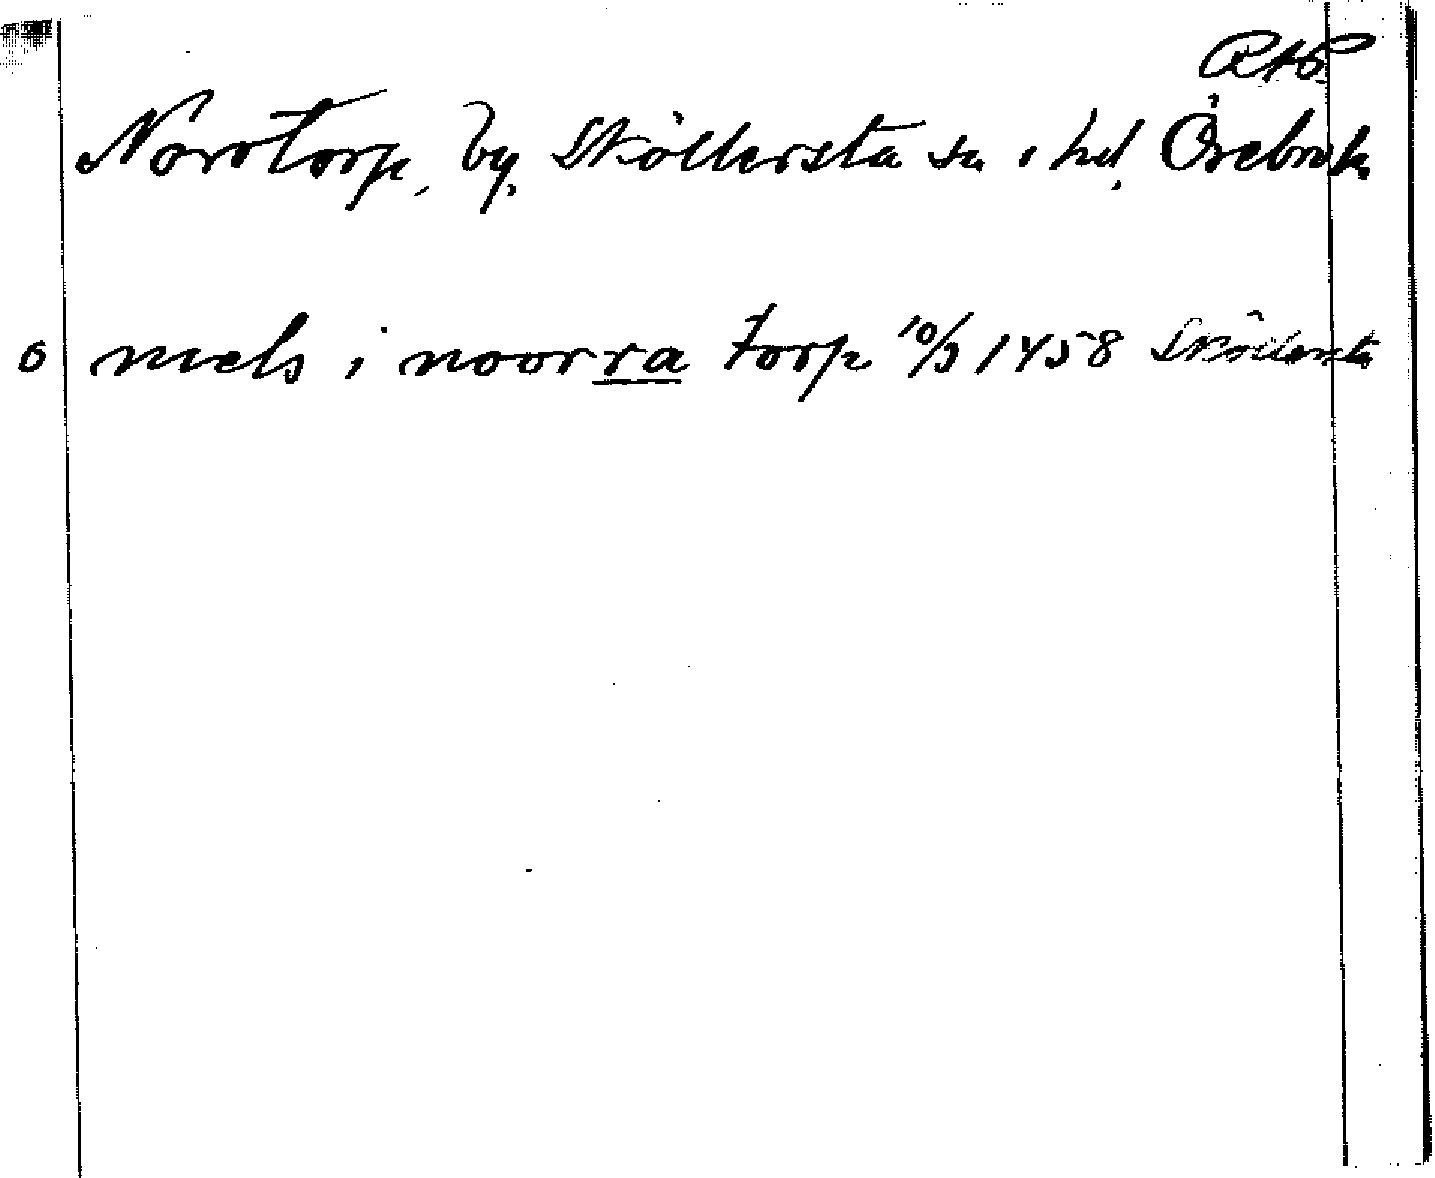 RAP
Norrtorp, by, Sköllersta sn o hd, Örebro l.
o niels i noorra torp 10/3 1458 Sköllersta